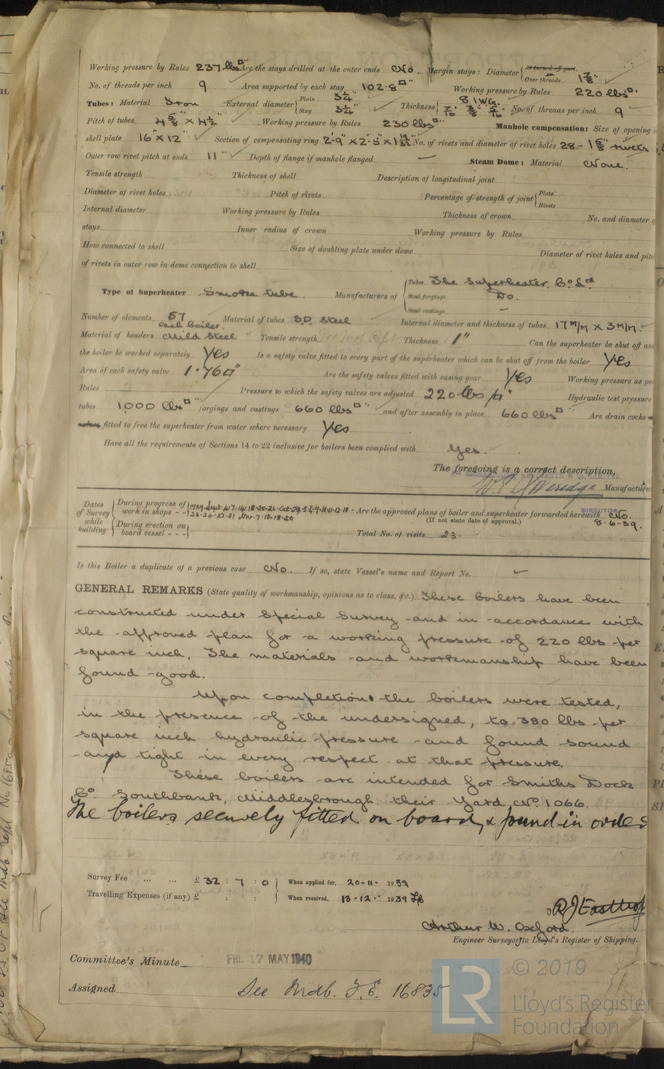 Working pressure by Rules 237 lbs□" Are the stays drilled at the outer ends No. Margin stays: Diameter { At turned off part, Over threads 1⅞"
No. of threads per inch 9 Area supported by each stay 102.8□" Working pressure by Rules 220 lbs□".
Tubes: Material Iron External diameter { Plain 3¼" Stay 3¼" Thickness { 8 IWG. No. of threads per inch 9
Pitch of tubes 4⅝ × 4½" Working pressure by Rules 230 lbs□" Manhole compensation: Size of opening
shell plate 16" × 12" Section of compensating ring No. of rivets and diameter of rivet holes 28 - rivets
Outer row rivet pitch at ends 11" Depth of flange if manhole flanged — Steam Dome: Material None.
Tensile strength Thickness of shell Description of longitudinal joint
Diameter of rivet holes Pitch of rivets Percentage of strength of joint { Plate Rivets
Internal diameter Working pressure by Rules Thickness of crown No. and diameter
stays Inner radius of crown Working pressure by Rules
How connected to shell Size of doubling plate under dome Diameter of rivet holes and pitch
of rivets in outer row in dome connection to shell
Type of Superheater Smoke tube. Manufacturers of { Tubes The Superheater Co Ltd Steel forgings Do. Steel castings —
Number of elements 57 each boiler. Material of tubes SD Steel Internal diameter and thickness of tubes 17 M/M × 3 M/M.
Material of headers Mild Steel Tensile strength Thickness 1" Can the superheater be shut off and
the boiler be worked separately Yes Is a safety valve fitted to every part of the superheater which can be shut off from the boiler Yes
Area of each safety valve 1.76□" Are the safety valves fitted with easing gear Yes Working pressure as per
Rules Pressure to which the safety valves are adjusted 220 lbs/□" Hydraulic test pressure
tubes 1000 lbs□" forgings and castings 660 lbs□" and after assembly in place 660 lbs□" Are drain cocks
fitted to free the superheater from water where necessary Yes
Have all the requirements of Sections 14 to 22 inclusive for boilers been complied with Yes.
The foregoing is a correct description,
Manufacturer
DIRECTOR
Dates of Survey while building { During progress of work in shops - - During erection on board vessel - - - Are the approved plans of boiler and superheater forwarded herewith No.
(If not state date of approval.) 8-6-39.
Total No. of visits 23
Is this Boiler a duplicate of a previous case No. If so, state Vessel's name and Report No. —
GENERAL REMARKS (State quality of workmanship, opinions as to class, &c.) These boilers have been
constructed under Special Survey and in accordance with
the approved plan for a working pressure of 220 lbs per
square inch. The materials and workmanship have been
found good.
Upon completion the boilers were tested,
in the presence of the undersigned, to 380 lbs per
square inch hydraulic pressure and found sound
and tight in every respect at that pressure.
These boilers are intended for Smiths Dock
Co Southbank, Middlesbrough, their Yard No. 1066.
The boilers securely fitted on board & found in order
Survey Fee ... ... £ 32 : 7 : 0 When applied for, 20-11-1939
Travelling Expenses (if any) £ : : When received, 13-12-1939
R J Easthop
Arthur W. Oxford.
Engineer Surveyor to Lloyd's Register of Shipping.
Committee's Minute FRI. 17 MAY 1940
Assigned See Mdb. F.E. 16835
LR © 2019
Lloyd's Register
Foundation